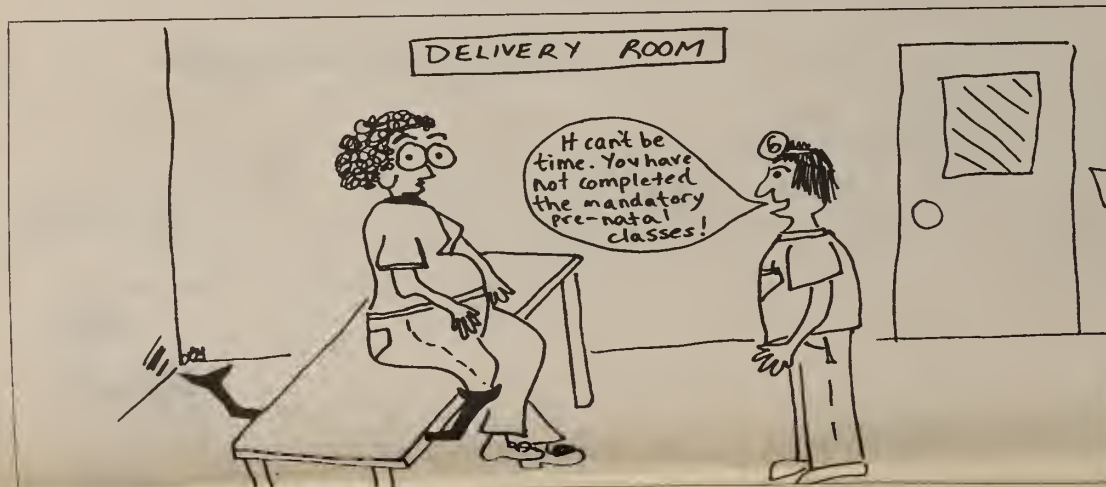 DELIVERY ROOM
It can't be
time. You have
not completed
the mandatory
pre-natal
classes!